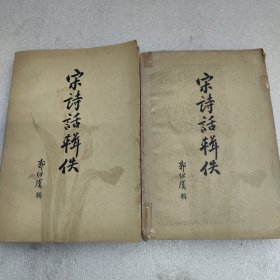 宋詩話輯佚
郭紹虞 輯
宋詩話輯佚
郭紹虞 輯